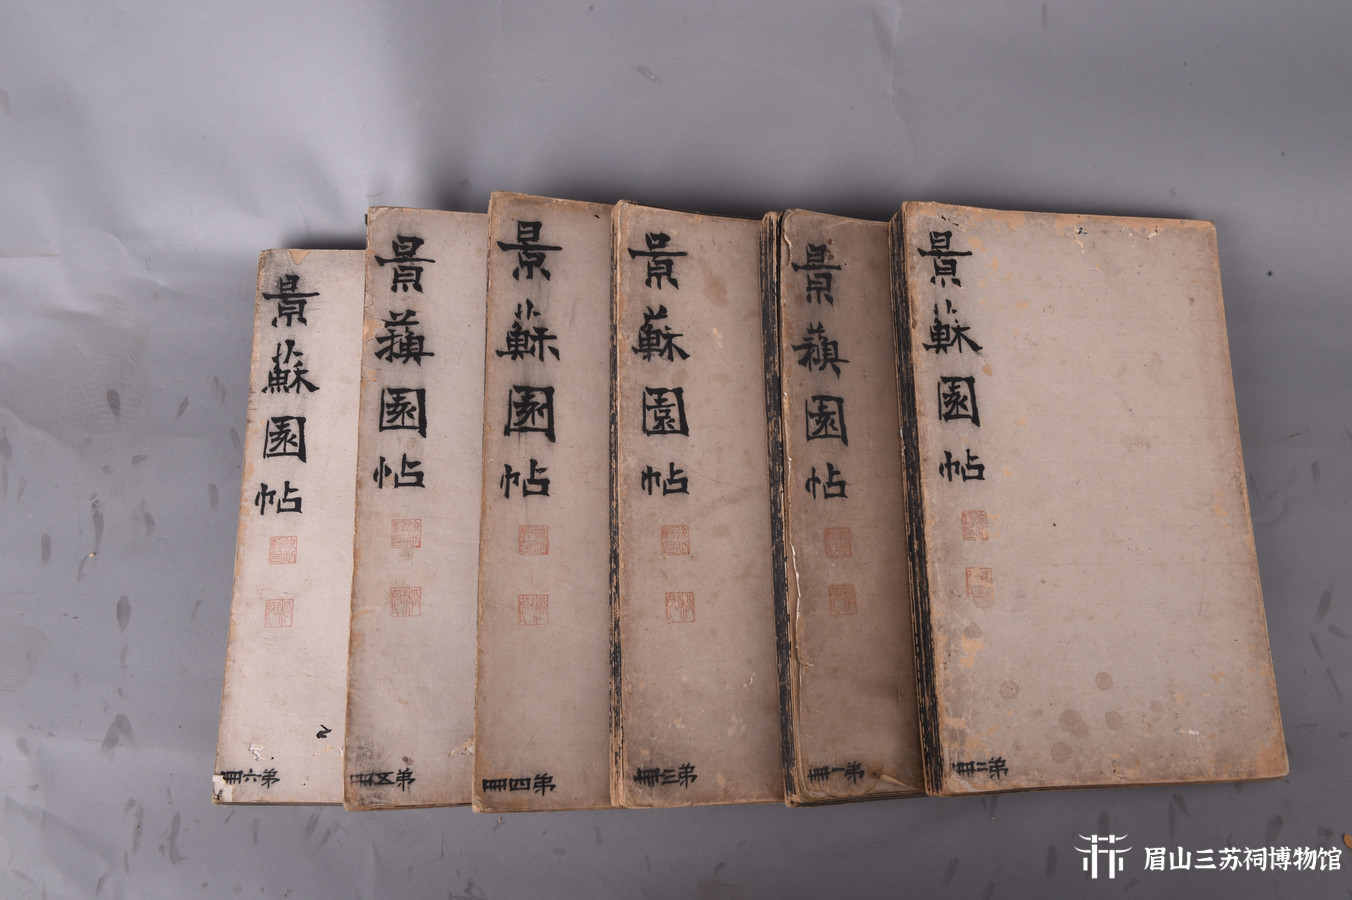 景蘇園帖
弟六冊
景蘓園帖
弟五冊
景蘇園帖
弟四冊
景蘇園帖
弟三冊
景蘓園帖
弟一冊
景蘇園帖
弟二冊
眉山三苏祠博物馆